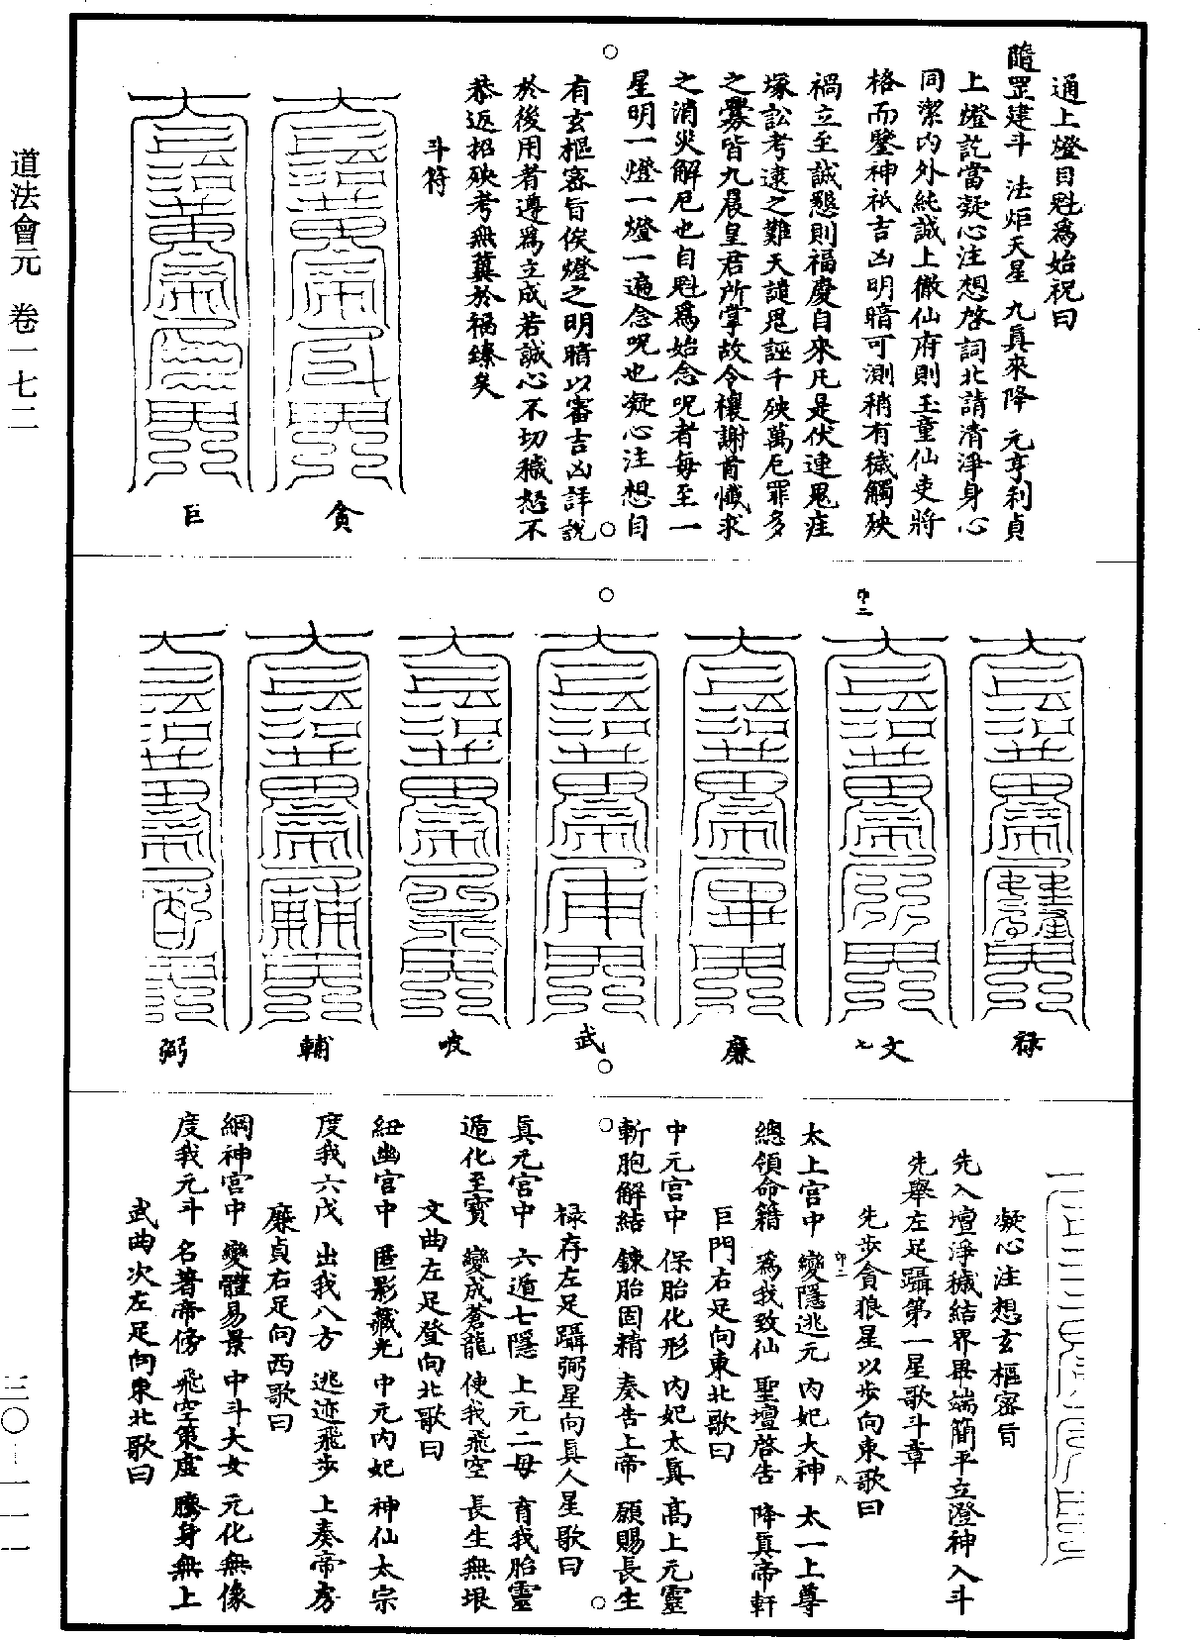 通上燈目魁為始祝曰
隨罡建斗 法炬天星 九真來降 元亨利貞
上燈訖當凝心注想啓詞北請清淨身心
同潔內外純誠上徹仙府則玉童仙吏將
格而鑒神祇吉凶明暗可測稍有穢觸殃
禍立至誠懇則福慶自來凡是伏連鬼疰
塚訟考逮之難天譴鬼誣千殃萬厄罪多
之釁皆九晨皇君所掌故令禳謝首懺求
之消災解厄也自魁為始念呪者每至一
星明一燈一燈一遍念呪也凝心注想自
有玄樞密旨俟燈之明暗以審吉凶詳說
於後用者遵為立成若誠心不切穢怒不
恭返招殃考無冀於福臻矣
斗符
貪
巨
禄
文
七
廉
武
破
輔
弼
凝心注想玄樞密旨
先入壇淨穢結界畢端簡平立澄神入斗
先舉左足躡第一星歌斗章
先步貪狼星以步向東歌曰
太上宮中 變隱逃元 內妃大神 太一上尊
總領命籍 為我致仙 聖壇啓告 降真帝軒
巨門右足向東北歌曰
中元宮中 保胎化形 內妃太真 高上元靈
斬胞解結 鍊胎固精 奏告上帝 願賜長生
禄存左足躡弼星向真人星歌曰
真元宮中 六遁七隱 上元二母 育我胎靈
遁化至寶 變成蒼龍 使我飛空 長生無垠
文曲左足登向北歌曰
紐幽宮中 匿影藏光 中元內妃 神仙太宗
度我六戊 出我八方 逃迹飛步 上奏帝房
廉貞右足向西歌曰
綱神宮中 變體易景 中斗大女 元化無像
度我元斗 名著帝傍 飛空策虛 騰身無上
武曲次左足向東北歌曰
道法會元 卷一七二
三〇―一一一